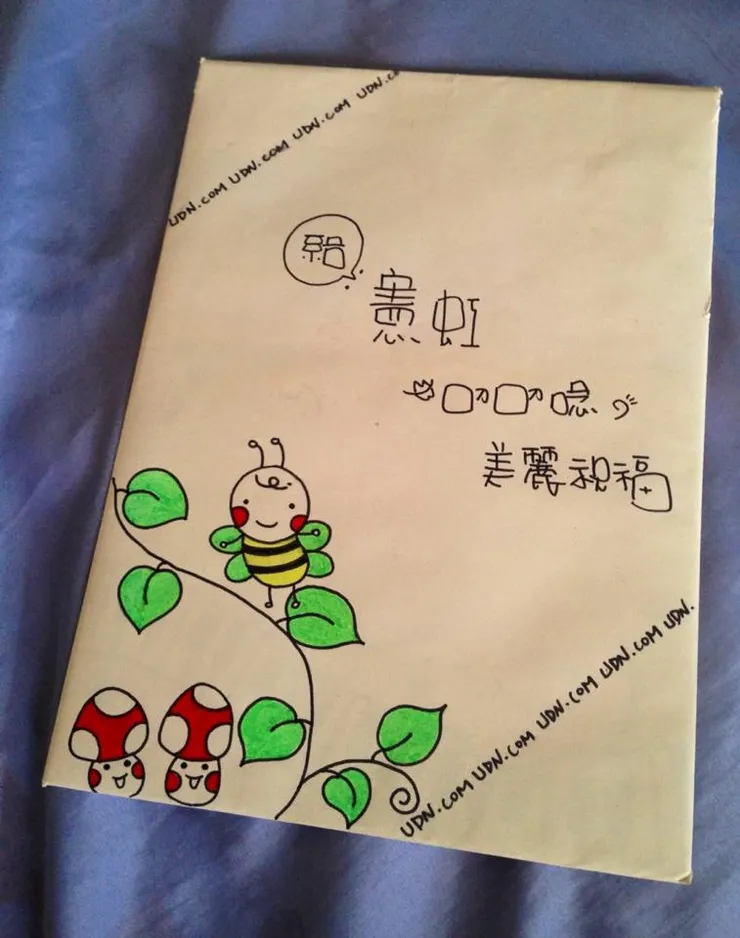 UDN.COM UDN.COM UDN.COM UDN.C
給
憲虹
叨叨唸
美麗祝福
UDN.COM UDN.COM UDN.COM UDN.COM UDN.